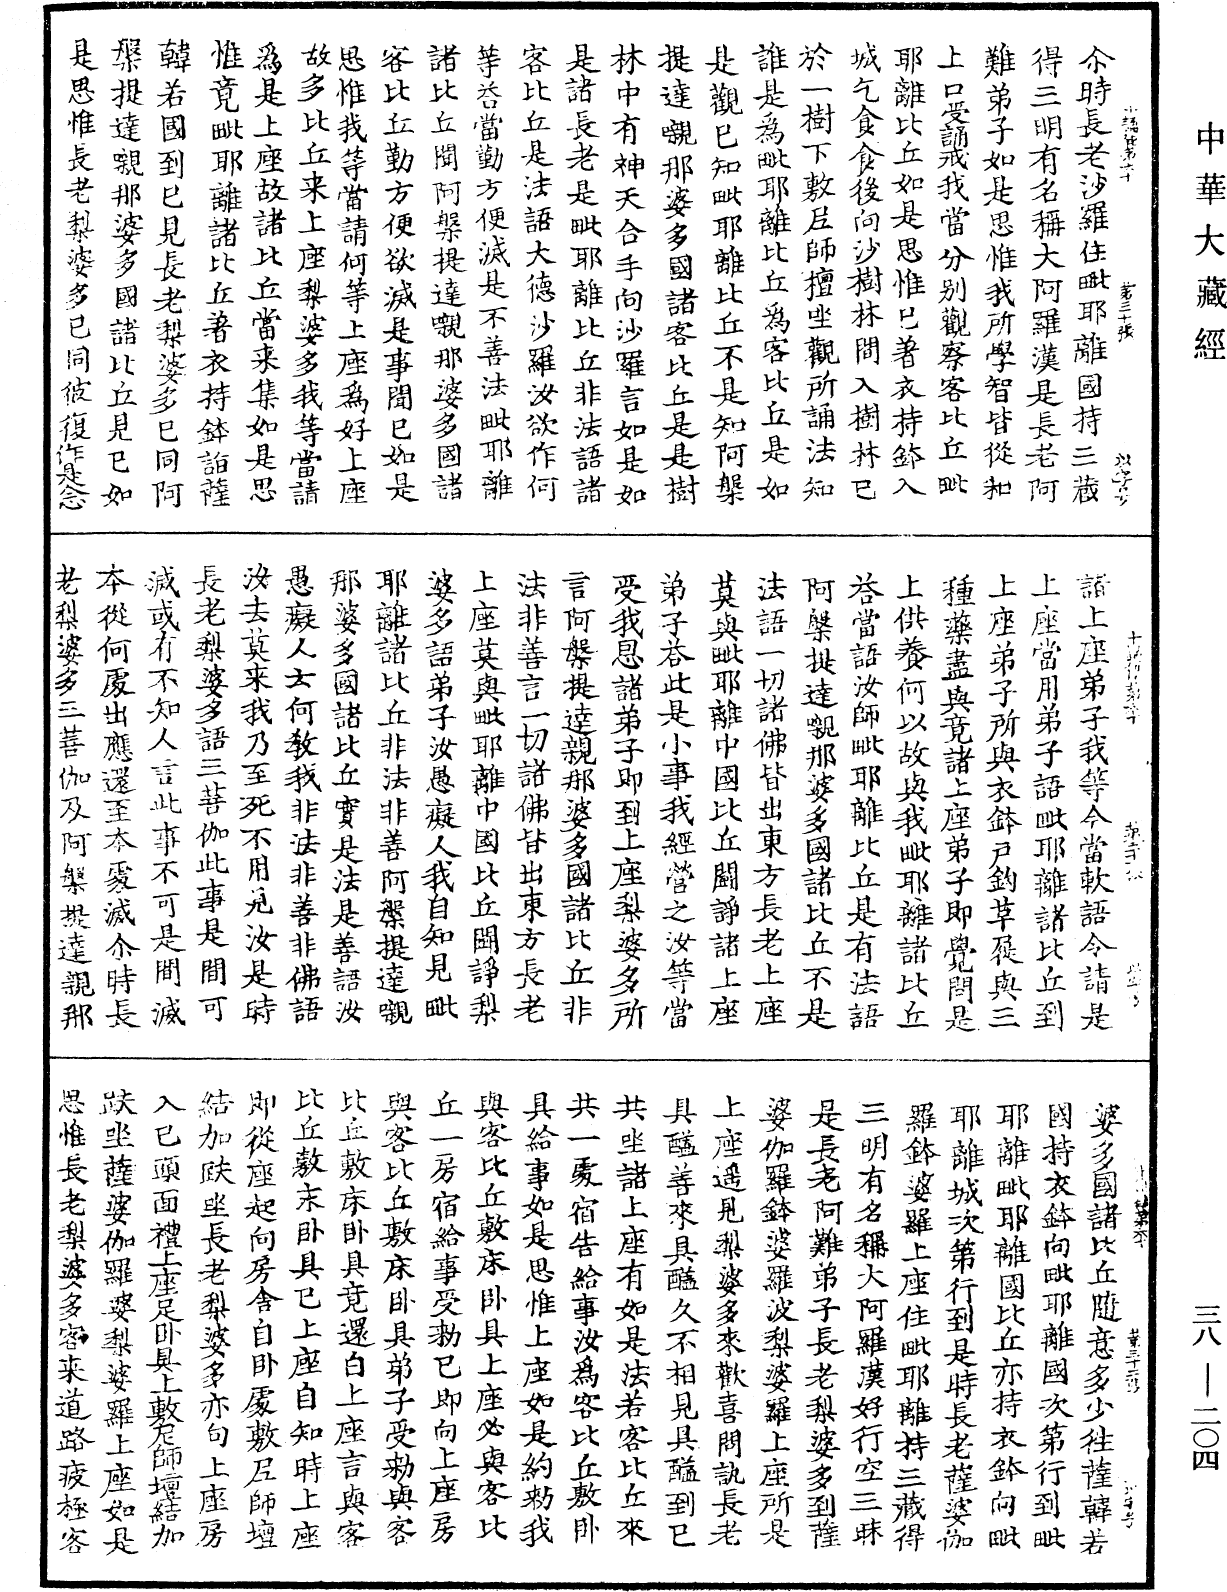 中華大藏經
尒時長老沙羅住毗耶離國持三藏
得三明有名稱大阿羅漢是長老阿
難弟子如是思惟我所學智皆從和
上口受誦戒我當分別觀察客比丘毗
耶離比丘如是思惟已著衣持鉢入
城乞食食後向沙樹林間入樹林已
於一樹下敷尼師檀坐觀所誦法知
誰是為毗耶離比丘為客比丘是如
是觀已知毗耶離比丘不是知阿槃
提達嚫那婆多國諸客比丘是是樹
林中有神天合手向沙羅言如是如
是諸長老是毗耶離比丘非法語諸
客比丘是法語大德沙羅汝欲作何
等荅當勤方便滅是不善法毗耶離
諸比丘聞阿槃提達嚫那婆多國諸
客比丘勤方便欲滅是事聞已如是
思惟我等當請何等上座為好上座
故多比丘来上座梨婆多我等當請
為是上座故諸比丘當来集如是思
惟竟毗耶離諸比丘著衣持鉢詣薩
韓若國到已見長老梨婆多已同阿
槃提達嚫那婆多國諸比丘見已如
是思惟長老梨婆多已同彼復作是念
諸上座弟子我等今當軟語令請是
上座當用弟子語毗耶離諸比丘到
上座弟子所與衣鉢戶鉤草屣與三
種藥盡與竟諸上座弟子即覺問是
上供養何以故與我毗耶離諸比丘
荅當語汝師毗耶離比丘是有法語
阿槃提達嚫那婆多國諸比丘不是
法語一切諸佛皆出東方長老上座
莫與毗耶離中國比丘鬪諍諸上座
弟子荅此是小事我經營之汝等當
受我恩諸弟子即到上座梨婆多所
言阿槃提達親那婆多國諸比丘非
法非善言一切諸佛皆出東方長老
上座莫與毗耶離中國比丘鬪諍梨
婆多語弟子汝愚癡人我自知見毗
耶離諸比丘非法非善阿槃提達嚫
那婆多國諸比丘實是法是善語汝
愚癡人云何教我非法非善非佛語
汝去莫来我乃至死不用見汝是時
長老梨婆多語三菩伽此事是間可
滅或有不知人言此事不可是間滅
本從何處出應還至本處滅尒時長
老梨婆多三菩伽及阿槃提達親那
婆多國諸比丘隨意多少往薩韓若
國持衣鉢向毗耶離國次第行到毗
耶離毗耶離國比丘亦持衣鉢向毗
耶離城次第行到是時長老薩婆伽
羅鉢婆羅上座住毗耶離持三藏得
三明有名稱大阿羅漢好行空三昧
是長老阿難弟子長老梨婆多到薩
婆伽羅鉢婆羅波梨婆羅上座所是
上座遥見梨婆多來歡喜問訊長老
具醯善來具醯久不相見具醯到已
共坐諸上座有如是法若客比丘來
共一處宿告給事汝為客比丘敷卧
具給事如是思惟上座如是約勑我
與客比丘敷床卧具上座必與客比
丘一房宿給事受勑已即向上座房
與客比丘敷床卧具弟子受勑與客
比丘敷床卧具竟還白上座言與客
比丘敷床卧具已上座自知時上座
即從座起向房舍自卧處敷尼師壇
結加趺坐長老梨婆多亦向上座房
入已頭面禮上座足卧具上敷尼師壇結加
趺坐薩婆伽羅婆梨婆羅上座如是
思惟長老梨婆多客来道路疲極客
三八—二〇四